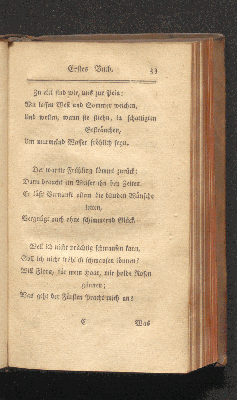 Erstes Buch. 33
Zu viel sind wir, uns zur Pein:
Wir lassen West und Sommer weichen,
Und wollen, wann sie fliehn, in schattigen
Gesträuchen,
Um murmelnd Wasser fröhlich seyn.
Der warme Frühling kömmt zurück:
Dann braucht ein Weiser ihn bey Zeiten.
Er läßt Vernunft allein die blinden Wünsche
leiten,
Vergnügt auch ohne schimmernd Glück.
Weil ich nicht prächtig schmausen kann,
Soll ich nicht fröhlich schmausen können?
Will Flora, für mein Haar, mir holde Rosen
gönnen;
Was geht der Fürsten Pracht mich an?
C Was